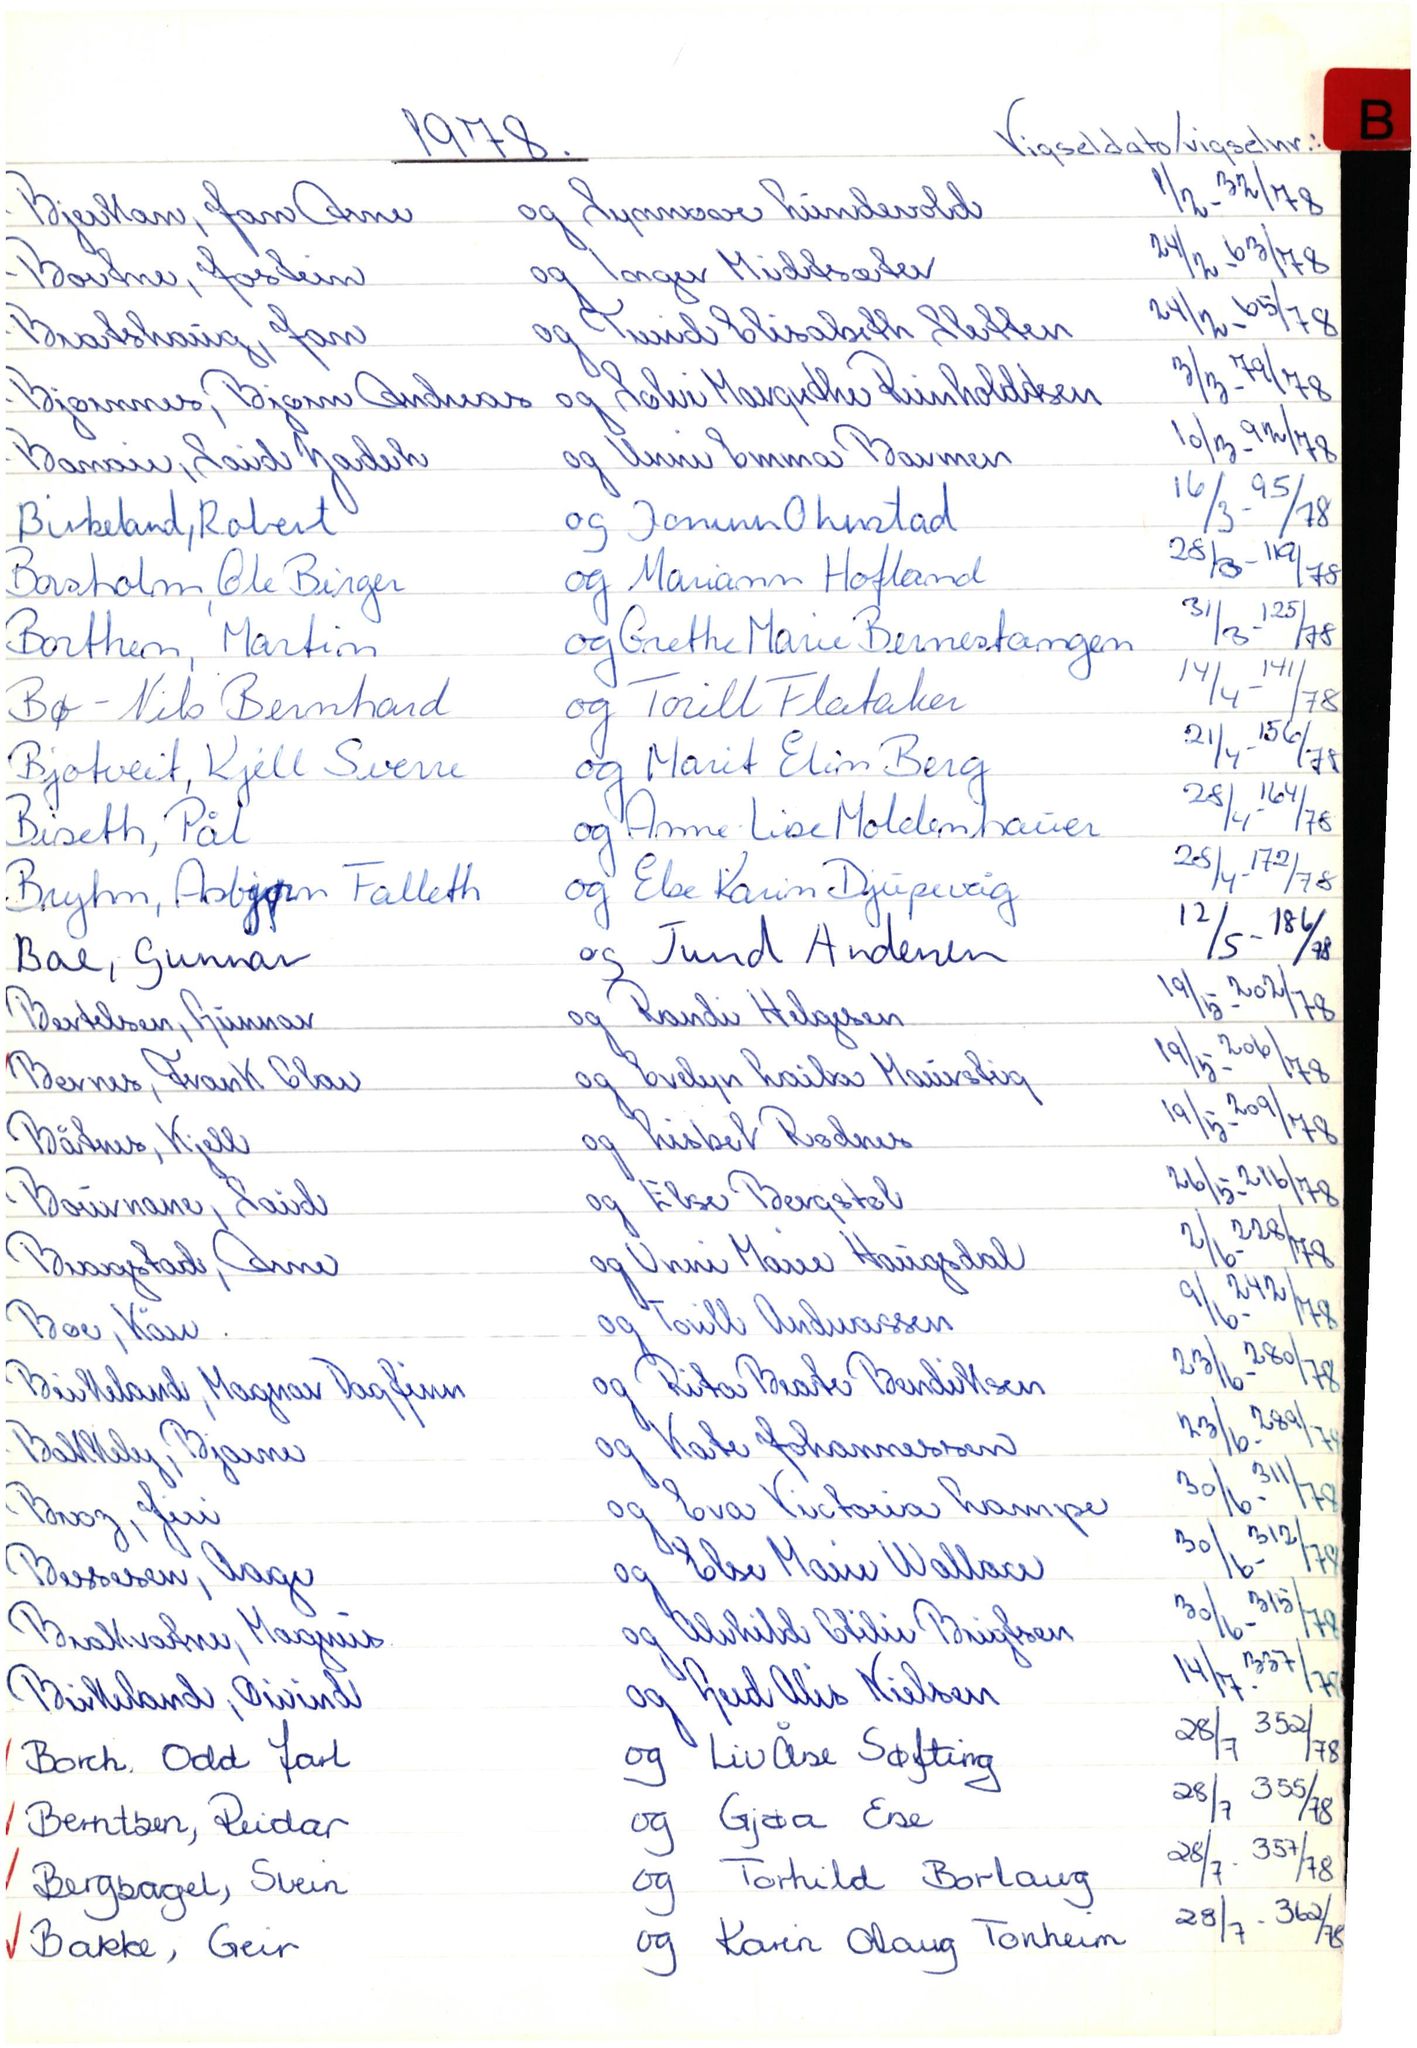 B
1978.
Vigseldato/vigselnr.:
Bjerkan, Jan Arne og Synnøve Lundevold 1/2-32/78
Botne, Jostein og Inger Midtsæter 24/2-63/78
Bratshaug, Jan og Turid Elisabeth Sletten 24/2-65/78
Bjørnnes, Bjørn Andreas og Solvi Margrethe Reinholdtsen 3/3-79/78
Banaie, Said Zadeh og Unni Emma Bowmen 10/3-92/78
Birkeland, Robert og Jorunn Ohnstad 16/3-95/78
Borsholm, Ole Birger og Mariann Hofland 28/3-119/78
Borthen, Martin og Grethe Marie Bernestangen 31/3-125/78
Bø - Nils Bernhard og Torill Flataker 14/4-141/78
Bjotveit, Kjell Sverre og Marit Elin Berg 21/4-156/78
Biseth, Pål og Anne-Lise Moldenhauer 28/4-164/78
Bryhn, Asbjørn Falleth og Else Karin Djupevåg 28/4-172/78
Bae, Gunnar og Turid Andersen 12/5-186/78
Bertelsen, Gunnar og Randi Helgesen 19/5-202/78
Bernes, Frank Olav og Evelyn Laila Maurstig 19/5-206/78
Båtnes, Kjell og Lisbet Rødnes 19/5-209/78
Bournane, Said og Else Bergstøl 26/5-216/78
Bragstad, Arne og Unni Marie Haugsdal 2/6-228/78
Boe, Kåre og Torill Andreassen 9/6-242/78
Birkeland, Magnar Dagfinn og Rita Beate Bendiksen 23/6-280/78
Bakkely, Bjarne og Kate Johannessen 23/6-289/78
Broz, Jiri og Eva Victoria Lampe 30/6-311/78
Bessesen, Aage og Else Marie Wallace 30/6-312/78
Brakvatne, Magnus og Alvhild Otilie Brigtsen 30/6-315/78
Birkeland, Øivind og Gerd Alis Nielsen 14/7-337/78
Borch. Odd Jarl og Liv Åse Søfting 28/7 352/78
Berntsen, Reidar og Gjøa Ese 28/7 355/78
Bergsagel, Svein og Torhild Borlaug 28/7-357/78
Bakke, Geir og Karin Olaug Tonheim 28/7-362/78